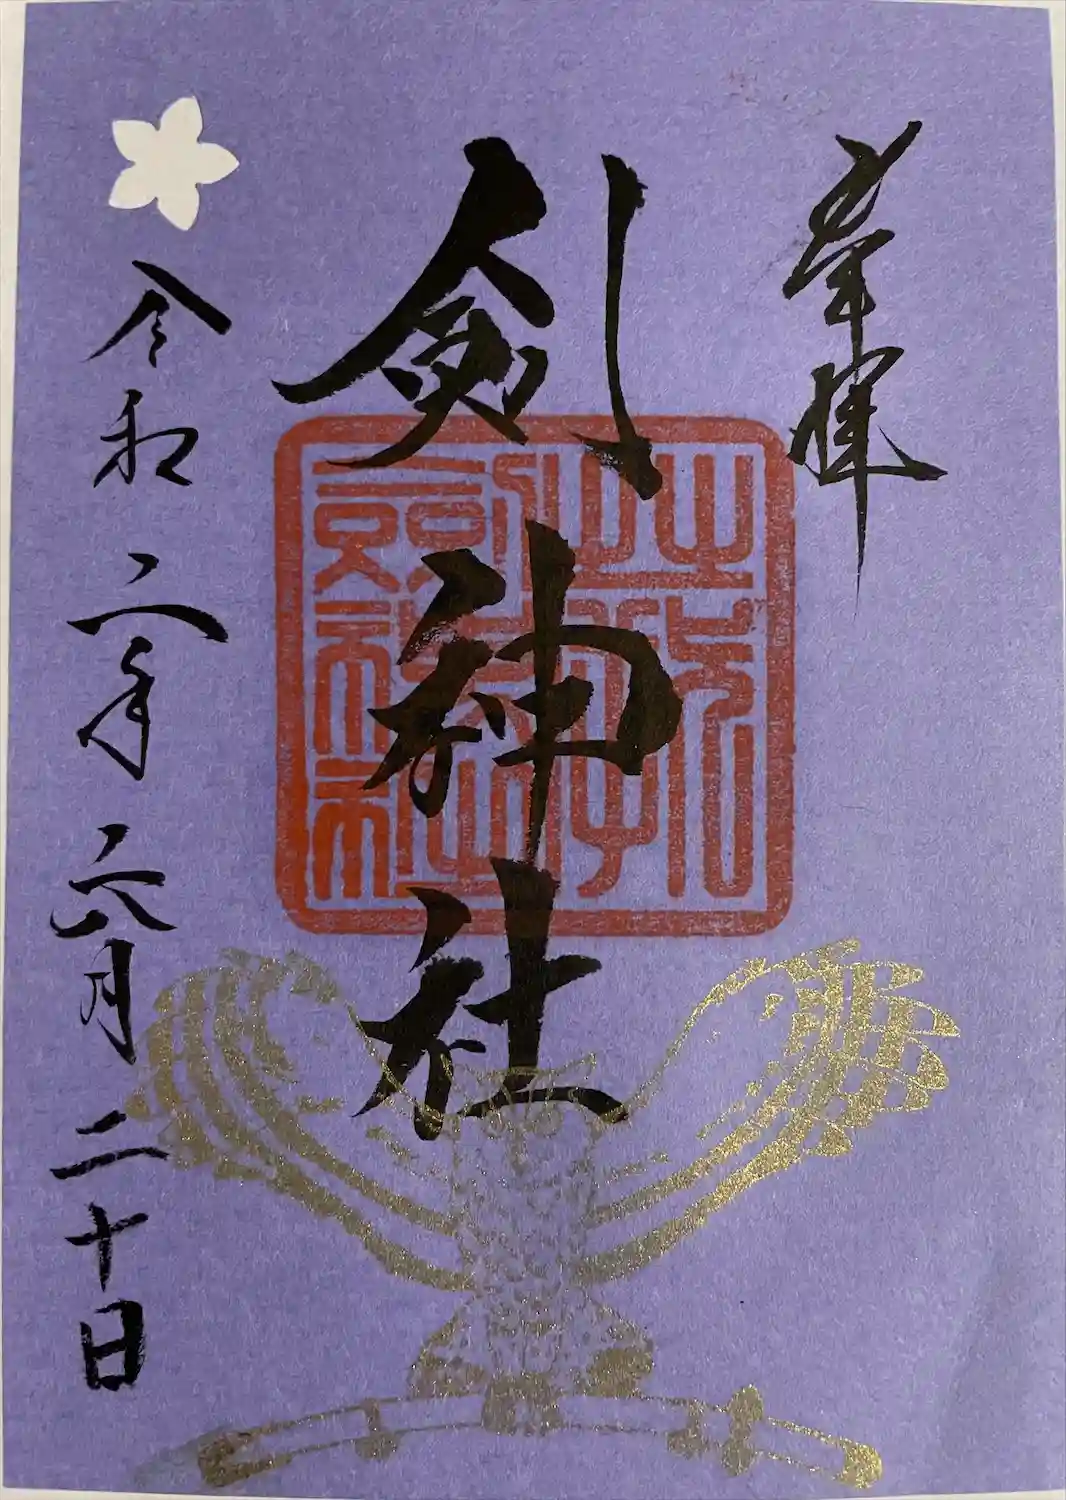 奉拝
剣神社
令和二年六月二十日